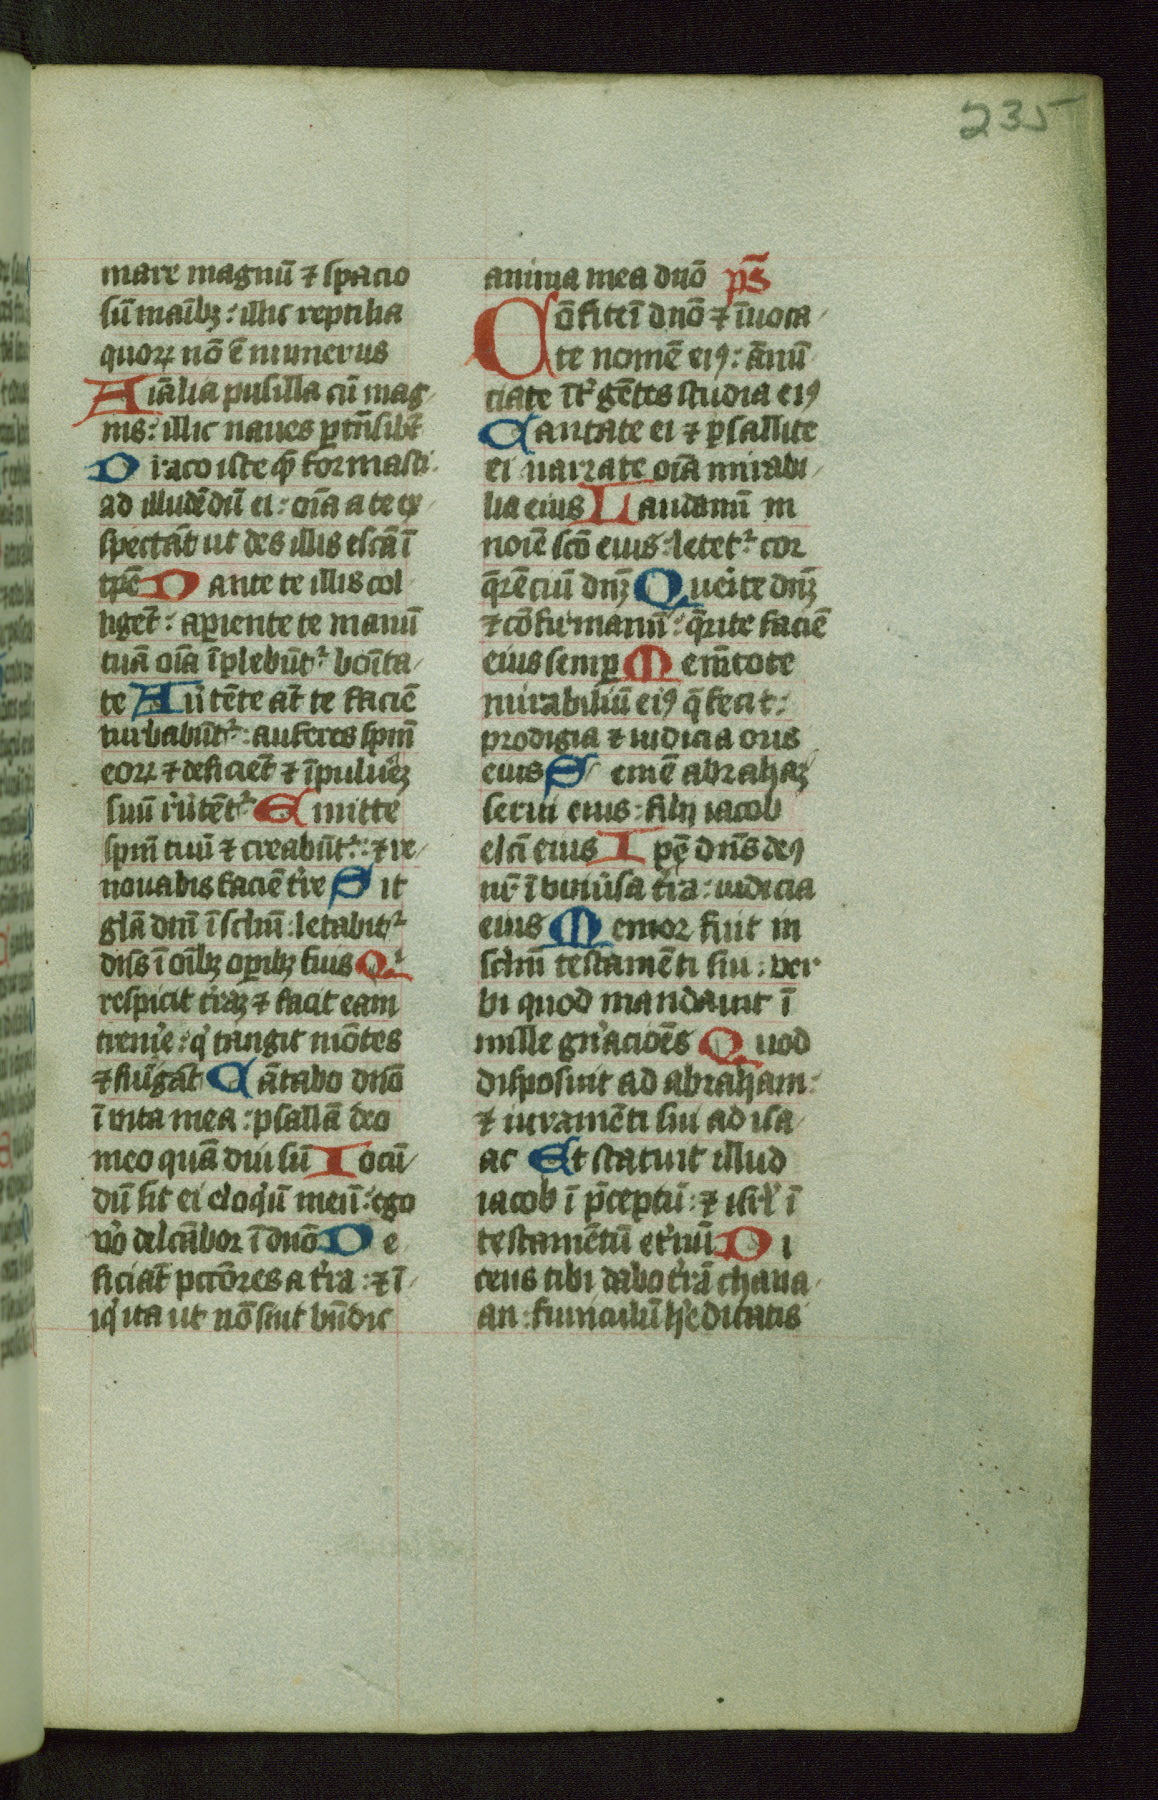 235
mare magnū ⁊ spacio
sū maībꝫ: illic reptilia
quoꝝ nō ē numerus
Aīalia pusilla cū mag-
nis: illic naues ꝑtrāsibūt
Draco iste quē formasti
ad illudēdū ei: oīa a te ex-
spectāt ut des illis escā ī
tp̄e Dante te illis col
liget̄: aperiente te manū
tuā oīa īplebūtᷣ bonīta-
te Auᷣtēte aūt te faciē
turbabūtᷣ: auferes spm̄
eoꝝ ⁊ deficiēt ⁊ ī puluᷣeꝫ
suū rᷣutētᷣ Emitte
spm̄ tuū ⁊ creabūtᷣ: ⁊ re-
nouabis faciē tᷣre Sit
glā dn̄i ī sclm̄: letabitᷣ
dn̄s ī oībꝫ oꝑibꝫ suis Qᷣ
respicit tᷣraꝫ ⁊ facit eam
tremᷣe: qᷣ tangit mōtes
⁊ fumigāt Cātabo dn̄o
ī uita mea: psallā deo
meo quādiu sū Iocū-
dū sit ei eloqᷣū meū: ego
uᷣo delcābor ī dn̄o De
ficiāt pctōres a tᷣra: ⁊ ī-
iqᷣ ita ut nō sint bn̄dic
anima mea dn̄o ps̄
Cōfitēī dn̄o ⁊ īuoca-
te nomē eiꝯ: ānū-
ciate īt̄ gētes studia eiꝯ
Cantate ei ⁊ psallite
ei narrate oīa mirabi-
lia eius Laudamī in
noīe scō eius: letetᷣ cor
q̄rēciū dn̄ꝫ Querite dn̄ꝫ
⁊ cōfirmamī: q̄rite faciē
eius semꝑ Mem̄tote
mirabiliū eiꝯ q̄ fecit:
prodigia ⁊ iudicia oris
eius Semē abrahaꝫ
serui eius: filij iacob
elc̄i eius Ip̄e dn̄s deꝯ
nr̄ ī uniuᷣsa tᷣra: iudicia
eius Memor fuit in
sclm̄ testamēti sui: ver
bi quod mandauit ī
mille gn̄acioēs Quod
disposuit ad abraham:
⁊ iuramēti sui ad isa-
ac Et statuit illud
iacob ī p̄ceptū: ⁊ isrl̄ ī
testamētū etᷣnū Di
cens tibi dabo tᷣrā chana-
an: funiculū hᷣeditatis